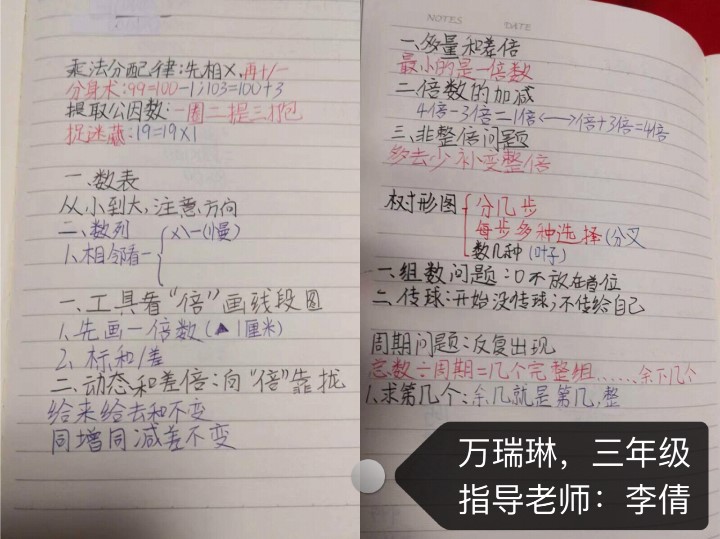 乘法分配律:先相×,再+/-
分身术:99=100-1;103=100+3
提取公因数:一圈二提三打包
捉迷藏:19=19×1
一、数表
从小到大,注意方向
二、数列
1、相邻看一
×\-(慢)
一、工具看“倍”画线段图
1、先画一倍数(▲1厘米)
2、标和/差
二、动态和差倍:向“倍”靠拢
给来给去和不变
同增同减差不变
NOTES DATE
一、多量和差倍
最小的是一倍数
二、倍数的加减
4倍-3倍=1倍⟷1倍+3倍=4倍
三、非整倍问题
多去少补变整倍
树形图
分几步
每步多种选择(分叉
数几种(叶子)
一、组数问题:0不放在首位
二、传球:开始没传球;不传给自己
周期问题:反复出现
总数÷周期=几个完整组……余下几个
1、求第几个:余几就是第几,整
万瑞琳,三年级
指导老师:李倩